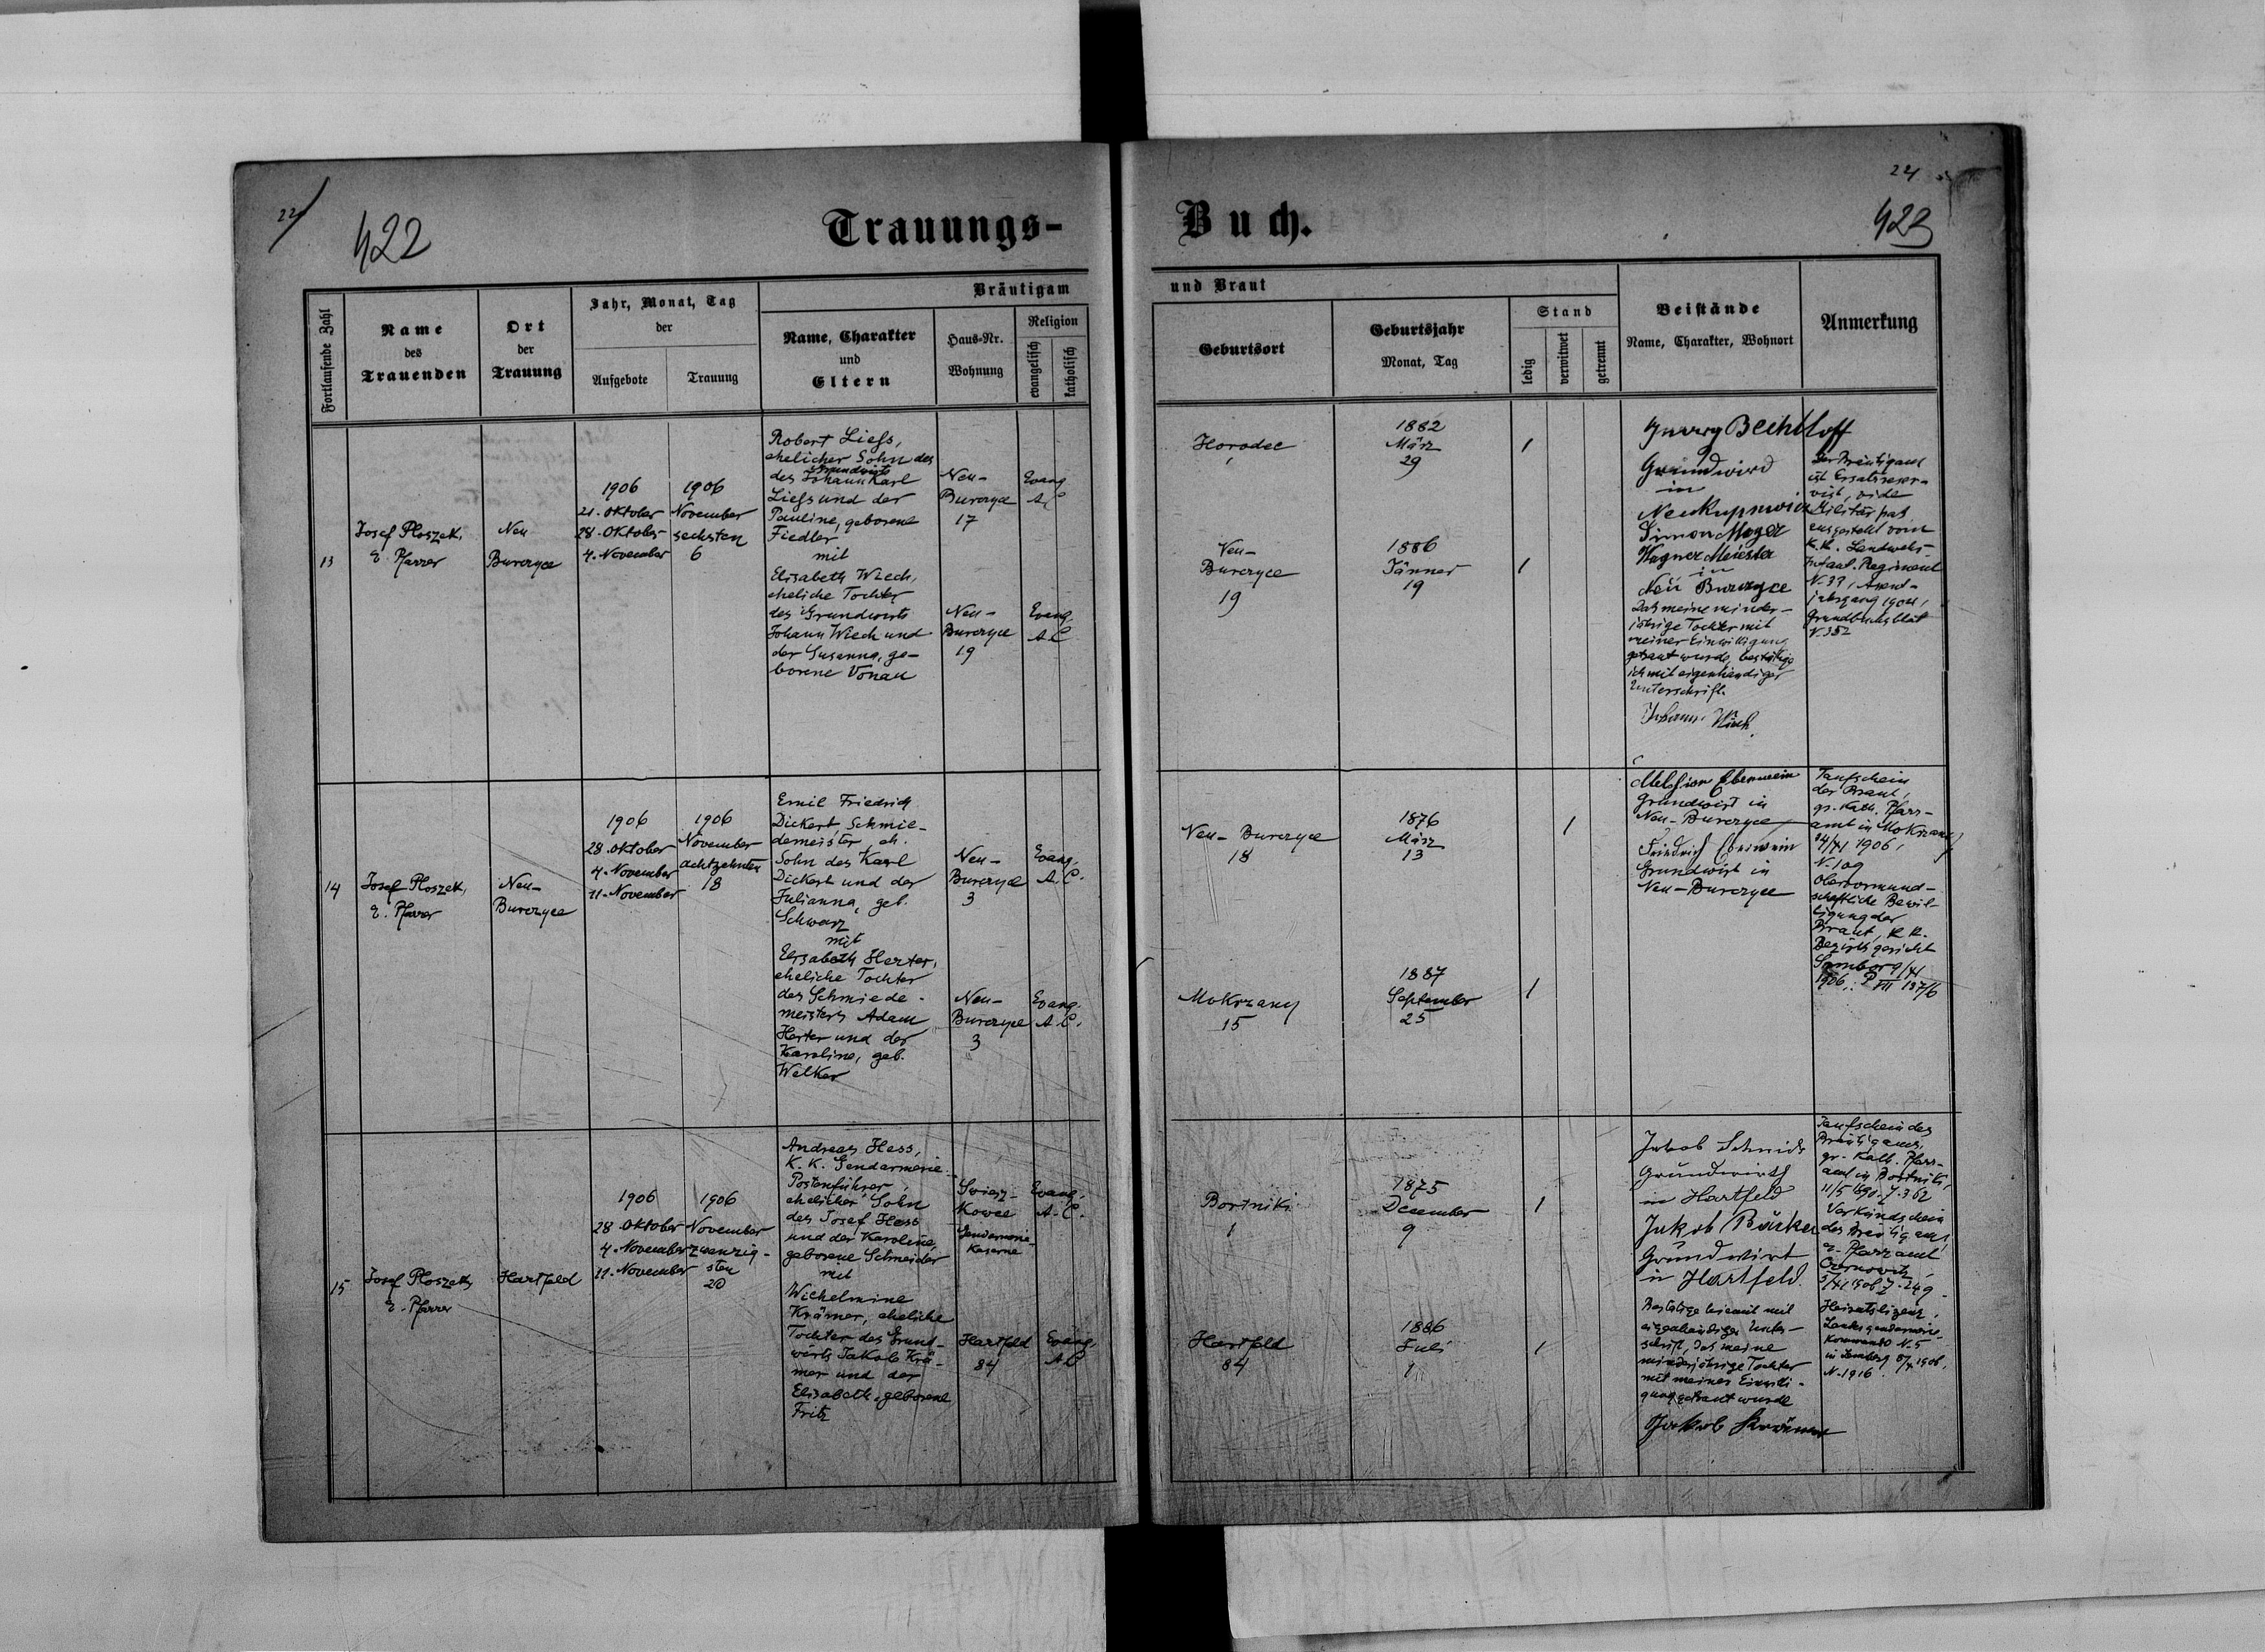 22
422
Trauungs-
Fortlaufende Zahl
Name
des
Trauenden
Ort
der
Trauung
Jahr, Monat, Tag
der
Aufgebote
Trauung
Bräutigam
Name, Charakter
und
Eltern
Haus-Nr.
Wohnung
Religion
evangelisch
katholisch
13
Josef Ploszek,
e. Pfarrer
Neu
Burczyce
1906
21. Oktober
28. Oktober
4. November
1906
November
sechsten
6
Robert Liess,
ehelicher Sohn des
Grundwirts
des Johann Karl
Liess und der
Pauline, geborene
Fiedler
mit
Elisabeth Wiech,
eheliche Tochter
des Grundwirts
Johann Wiech und
der Susanna, ge-
borene Vonau
Neu-
Burczyce
17
Evang.
A.C
Neu-
Burczyce
19
Evang.
A.C
14
Josef Ploszek,
e. Pfarrer
Neu-
Burczyce
1906
28. Oktober
4. November
11. November
1906
November
achtzehnten
18
Emil Friedrich
Dickert, Schmie-
demeister, eh.
Sohn des Karl
Dickert und der
Julianna, geb.
Schwarz
mit
Elisabeth Herter,
eheliche Tochter
des Schmiede-
meisters Adam
Herter und der
Karoline, geb.
Welker
Neu-
Burczyce
3
Evang.
A.C.
Neu-
Burczyce
3
Evang.
A.C.
15
Josef Ploszek,
e. Pfarrer
Hartfeld
1906
28. Oktober
4. November
11. November
1906
November
zwanzig-
sten
20
Andreas Hess,
K. K. Gendarmerie-
Postenführer,
ehelicher Sohn
des Josef Hess
und der Karoline,
geborene Schneider
mit
Wilhelmine
Krämer, eheliche
Tochter des Grund-
wirts Jakob Krä-
mer und der
Elisabeth, geborene
Fritz
kowce
Gendarmerie-
Kaserne
Evang.
A.C.
Hartfeld
84
Evang.
A.C
24
423
Buch.
und Braut
Geburtsort
Geburtsjahr
Monat, Tag
Stand
ledig
verwitwet
getrennt
Beistände
Name, Charakter, Wohnort
Anmerkung
Horodec
1882
März
29
1
Neu-
Burczyce
19
1886
Jänner
19
1
Bechtloff
Grundwird
in
Simon Meyer
Wagner Meister
in
Neu Burczyce
Das meine minder-
jährige Tochter mit
meiner Einwilligung
getraut wurde, bestätige
ich mit eigenhändiger
Unterschrift.
Johann Wiech.
Der Bräutigam
ist Ersatzreser-
vist, vide
Militärpas
ausgestellt vom
K.K. Landwehr-
Infant. Regiment
N. 33, Assent-
jahrgang 1904,
Grundbuchsblat
N. 352
Neu-Burczyce
18
1876
März
13
1
Mokrzany
15
1887
September
25
1
Melchior Eberwein
Grundwirt in
Neu-Burczyce
Friedrich Eberwein
Grundwirt in
Neu-Burczyce
Taufschein
der Braut,
gr. Kath. Pfarr-
amt in Mokrzany
14/XI 1906,
N. 109
Obervormund-
schaftliche Bewil-
ligung der
Braut, K. K.
Bezirksgericht
Sambor 9/XI
1906, P VII 137/6
Bortniki
1
1875
December
9
1
Hartfeld
84
1886
Juli
1
1
Jakob Schmidt
Grundwirth
in Hartfeld
Jakob Bäcker
Grundwirt
in Hartfeld.
Bestätige hiemit mit
eigenhändiger Unter-
schrift, das meine
minderjährige Tochter
mit meiner Einwilli-
gung getraut wurde
Jakob Krämer
Taufschein des
Bräutigams,
gr. Kath. Pfarr-
amt in Bortniki,
11/5 1890. Z. 362
Verkündschein
des Bräutigams,
e. Pfarramt
Czernowitz,
Z. 249.
Heiratslizenz,
Landesgendarmerie-
Kommando N. 5
in Lemberg 1906,
N. 1916.